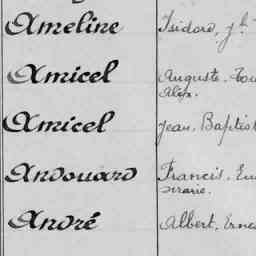 Ameline Isidore, J.h
Amicel Auguste
Alex.
Amicel Jean, Baptist
Andouard Francis,
Marie.
André Albert, Ernes